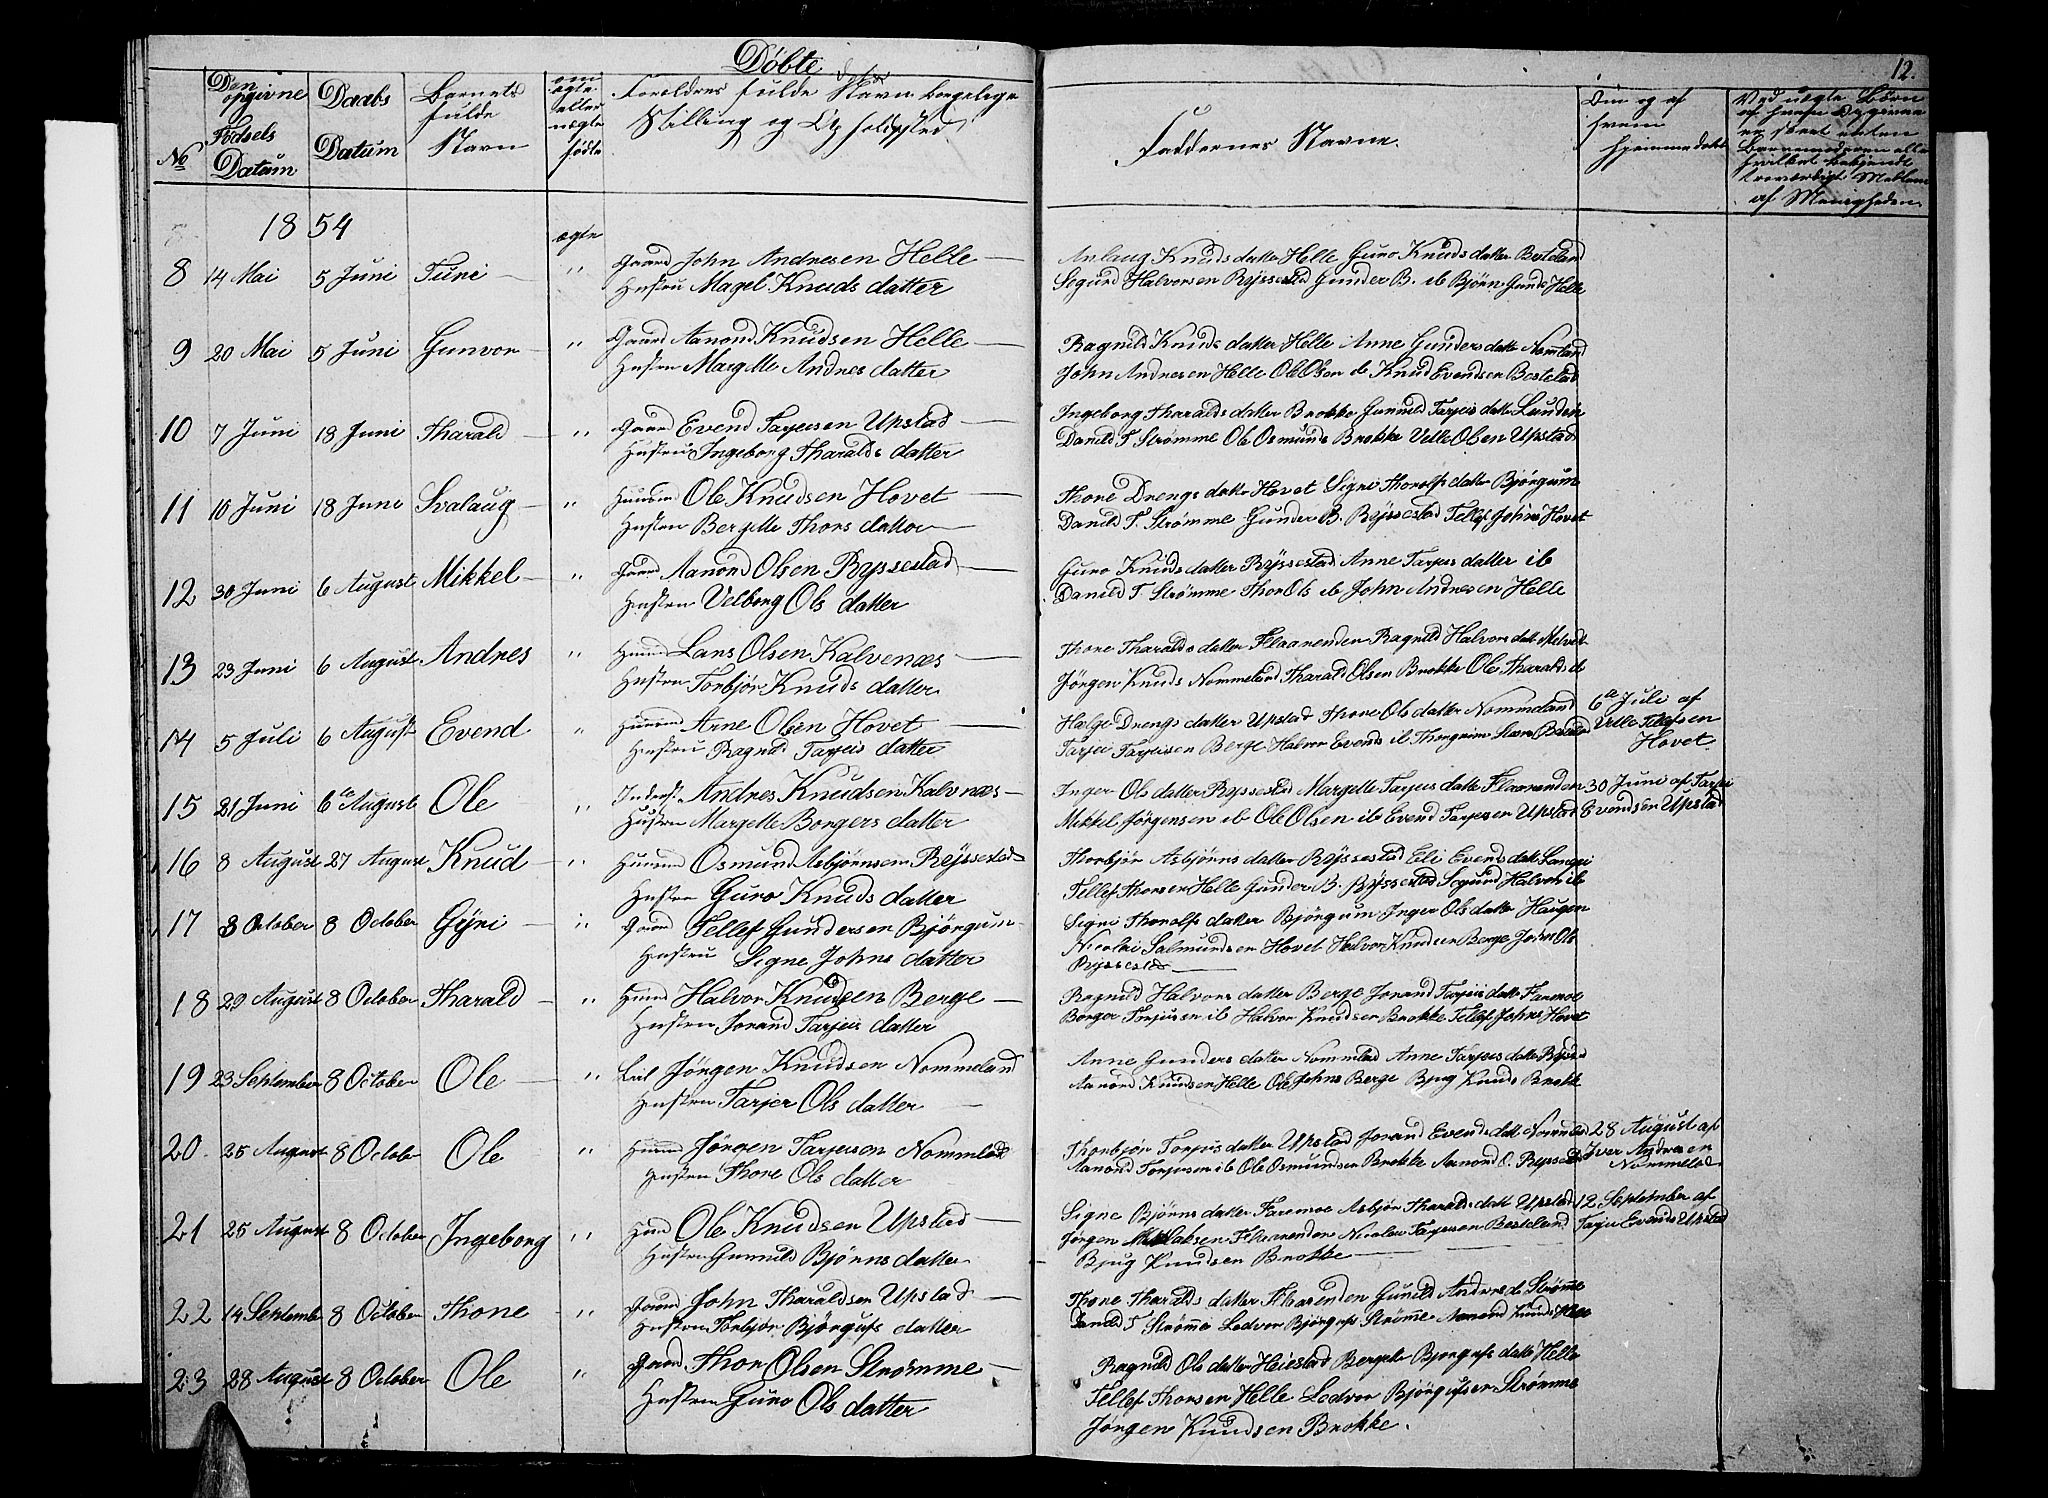 Døbte
12.
No
Den opgivne Fødsels Datum
Daabs Datum
Barnets fulde Navn
om ægte eller uægte født
Forældres fulde Navn Stilling og Opholdssted
Faddernes Navne.
Om og af hvem hjemmedøbt
Ved uægte Børn af Menigheden
1854
ægte
8 14 Mai 5 Juni Turi " Gaard John Andresen Helle
Hustru Magel Knuds datter
Anlaug Knuds datter Helle Guro Knuds datter Besteland
Segurd Halvorsen Ryssestad Gunder B. ib Bjørn Gunds Helle
9 20 Mai 5 Juni Gunvor " Gaard Aanond Knudsen Helle
Hustru Margette Andres datter
Ragnild Knuds datter Helle Anne Gunders datt Nomland
John Andresen Helle Ole Olsen ib Knud Evendsen Bestelad
10 7 Juni 18 Juni Tharald " Gaar Evend Tarjeisen Upstad
Hustru Ingeborg Tharalds datter
Ingeborg Tharalds datter Brokke Gunnild Tarjeis datter Lunden
Danild T. Strømme Ole Osmunds Brokke Velle Olsen Upstad
11 10 Juni 18 Juni Svalaug " Huusm Ole Knudsen Hovet
Hustru Bergette Thors datter
Thone Drengs datter Hovet Signi Thorolfs datter Bjørgum
Danild T. Strømme Gunder B. Ryssestad Tellef Johns Hovet
12 30 Juni 6 August Mikkel " Gaard Aanond Olsen Ryssestad
Hustru Velborg Ols datter
Guro Knuds datter Ryssestad Anne Tarjeis datter ib
Danild T. Strømme Thor Ols ib John Andresen Helle
13 23 Juni 6 August Andres " Huusm Lars Olsen Kalvenæs
Hustru Torbjør Knuds datter
Thone Tharalds datter Flaarenden Ragnild Halvors datt
Jørgen Knuds Nommeland Tharald Olsen Brokke Ole Tharalds ib
14 5 Juli 6 August Evend " Huusm Arne Olsen Hovet
Hustru Ragnild Tarjeis datter
Helge Drengs datter Upstad Thone Ols datter Nommeland 6te Juli af
Tarjei Tarjeisen Berge Halvor Evends ib Thorgrim Velle Tellefsen
Hovet
15 21 Juni 6te August Ole " Inderst Andres Knudsen Kalvnæs
Hustru Margette Borgers datter
Inger Ols datter Ryssestad Margette Tarjeis datte Flaarenden 30 Juni af Tarjei
Mikkel Jørgensen ib Ole Olsen ib Evend Tarjeisen Upstad Evendsen Upstad
16 8 August 27 August Knud " Huusm Osmund Asbjørnsen Ryssestad
Hustru Guro Knuds datter
Thorbjør Asbjørns datter Ryssestad Eli Evends datt Langei
Tellef Thorsen Helle Gunder B. Ryssestad Segurd Halvors ib
17 3 October 8 October Gyri " Gaard Tellef Gundersen Bjørgum
Hustru Signe Johns datter
Signi Thorolfs datter Bjørgum Inger Ols datter Haugen
Nicolai Salmundsen Hovet Halvor Knudsen Berge John Ols
Ryssestad
18 29 August 8 October Tharald " Huusm Halvor Knudsen Berge
Hustru Jorand Tarjeis datter
Ragnild Halvors datter Berge Jorand Tarjeis datt Faremoe
Borger Torjusen ib Halvor Knudsen Brokke Tellef Johns Hovet
19 23 September 8 October Ole " Leil Jørgen Knudsen Nommeland
Hustru Tarjer Ols datter
Anne Gunders datter Nommlad Anne Tarjeis datte Rysse
Aanond Knudsen Helle Ole Johns Berge Bjug Knuds Brokke
20 25 August 8 October Ole " Huusm Jørgen Tarjeisen Nommlad
Hustru Thone Ols datter
Thorbjør Torjus datter Upstad Jorand Evends datt Nommlad 28 August af
Aanond Torjusen ib Ole Osmundsen Brokke Aanond O. Ryssestad Iver Andresen
Nommelad
21 25 August 8 October Ingeborg " Huusm Ole Knudsen Upstad
Hustru Gunnild Bjørns datter
Signe Bjørns datter Faremoe Asbjør Tharalds datt Upstad 12 September af
Jørgen Flaarenden Nicolai Tarjeisen Besteland Tarjei Evends Upstad
Bjug Knudsen Brokke
22 14 September 8 October Thone " Gaard John Tharaldsen Upstad
Hustru Torbjør Bjørgufs datter
Thone Tharalds datter Flaarenden Gunild Andres d Strømme
Danild T Strømme Ledvor Bjørgufs Strømme Aanond Knuds Helle
23 28 August 8 October Ole " Gaard Thor Olsen Strømme
Hustru Guro Ols datter
Ragnild Ols datter Heiestad Bergette Bjørgufs datt Helle
Tellef Thorsen Helle Ledvor Bjørgufsen Strømme
Jørgen Knudsen Brokke.